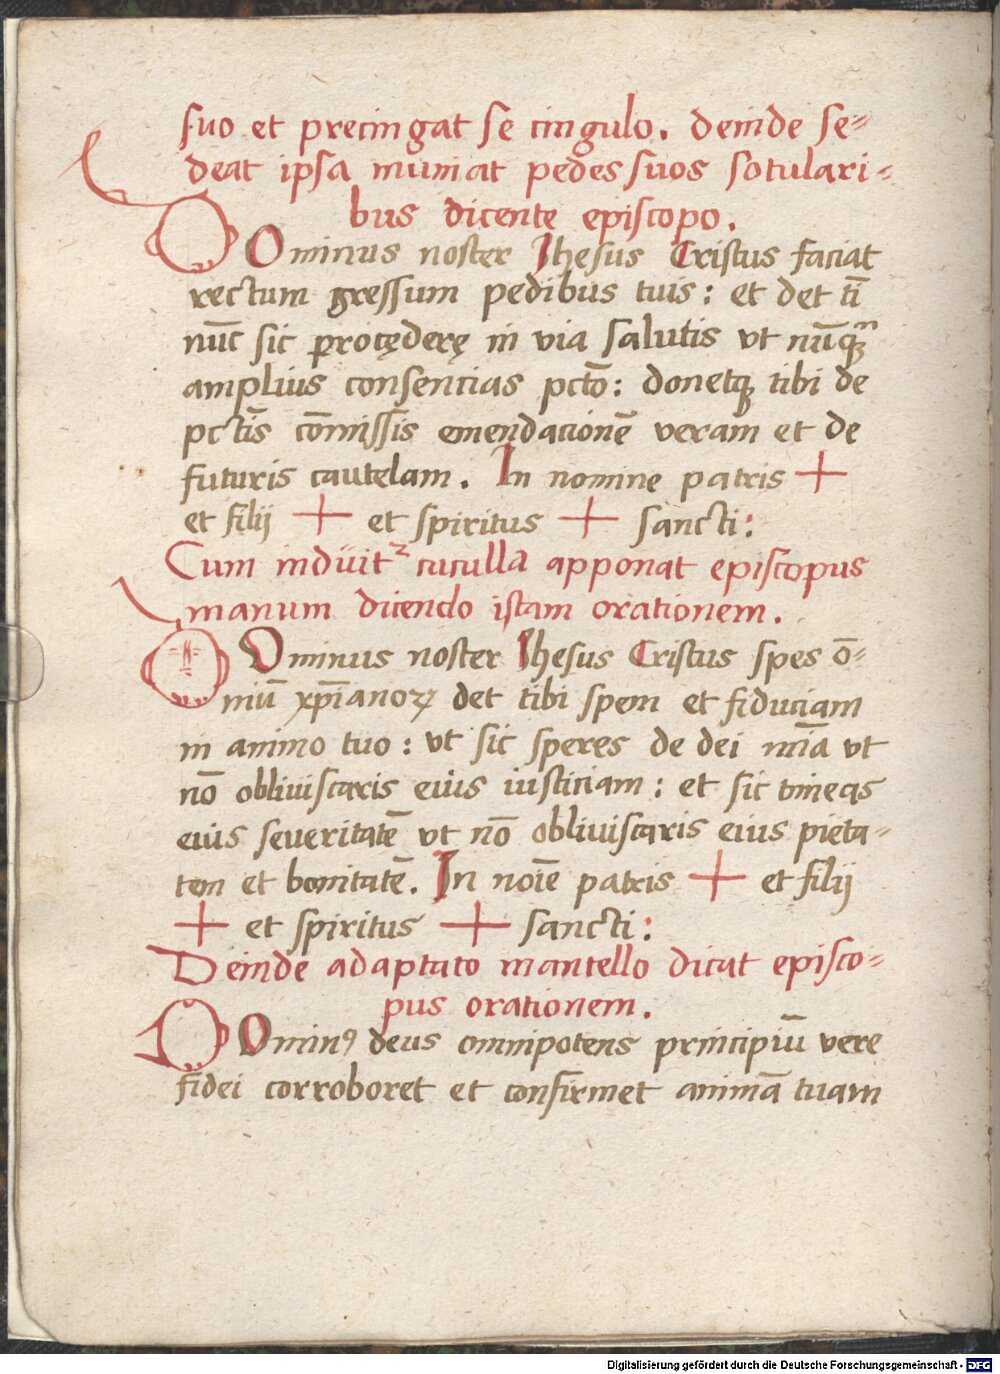 suo et precingat se cingulo. deinde se=
deat ipsa muniat pedes suos sotulari=
bus dicente episcopo.
DOminus noster Jhesus Cristus faciat
rectum gressum pedibus tuis: et det tī
nūc sic procęderę in via salutis vt nūqꝫᵐ
amplius consencias pctō: donetqꝫ tibi de
pctīs cōmissīs emendacionē veram et de
futuris cautelam. In nomine patris +
et filij + et spiritus + sancti:
Cum induit² cuculla apponat episcopus
manum dicendo istam orationem.
DOminus noster Jhesus Cristus spes ō=
miū xp̄ianoꝝ det tibi spem et fiduciam
in animo tuo: vt sic speres de dei mīa vt
nō obliuiscaris eius iusticiam: et sic timeas
eius seueritatē vt nō obliuiscaris eius pieta=
tem et bonitatē. In noīe patris + et filij
+ et spiritus + sancti:
Deinde adaptato mantello dicat episco=
pus orationem.
DOminꝰ deus omnipotens principiū vere
fidei corroboret et confirmet animā tuam
Digitalisierung gefördert durch die Deutsche Forschungsgemeinschaft - DFG